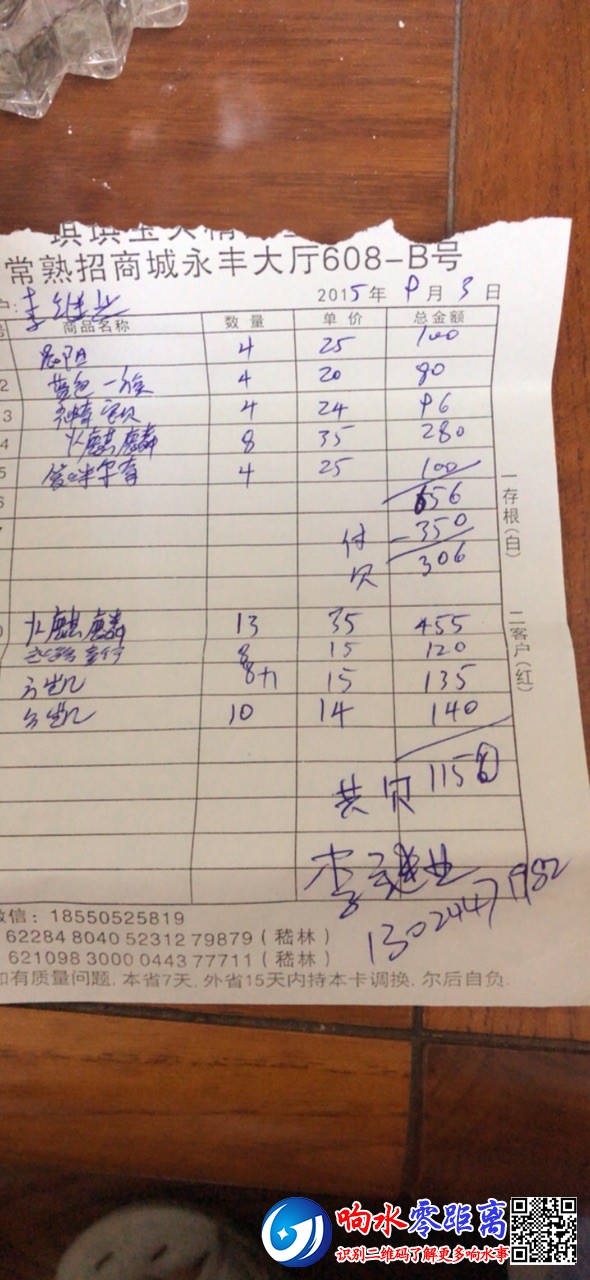 常熟招商城永丰大厅608-B号
李继业 2015年9月3日
商品名称 数量 单价 总金额
4 25 100
2 蓝色一族 4 20 80
3 宝贝 4 24 96
4 火麒麟 8 35 280
5 4 25 100
6 656
付 -350
欠 306
火麒麟 13 35 455
8 15 120
15 135
10 14 140
共欠 1156
李继业
13024471982
一存根(白)
二客户(红)
微信: 18550525819
62284 8040 52312 79879 (嵇林)
621098 3000 0443 77711 (嵇林)
如有质量问题, 本省7天, 外省15天内持本卡调换, 尔后自负.
响水零距离
识别二维码了解更多响水事